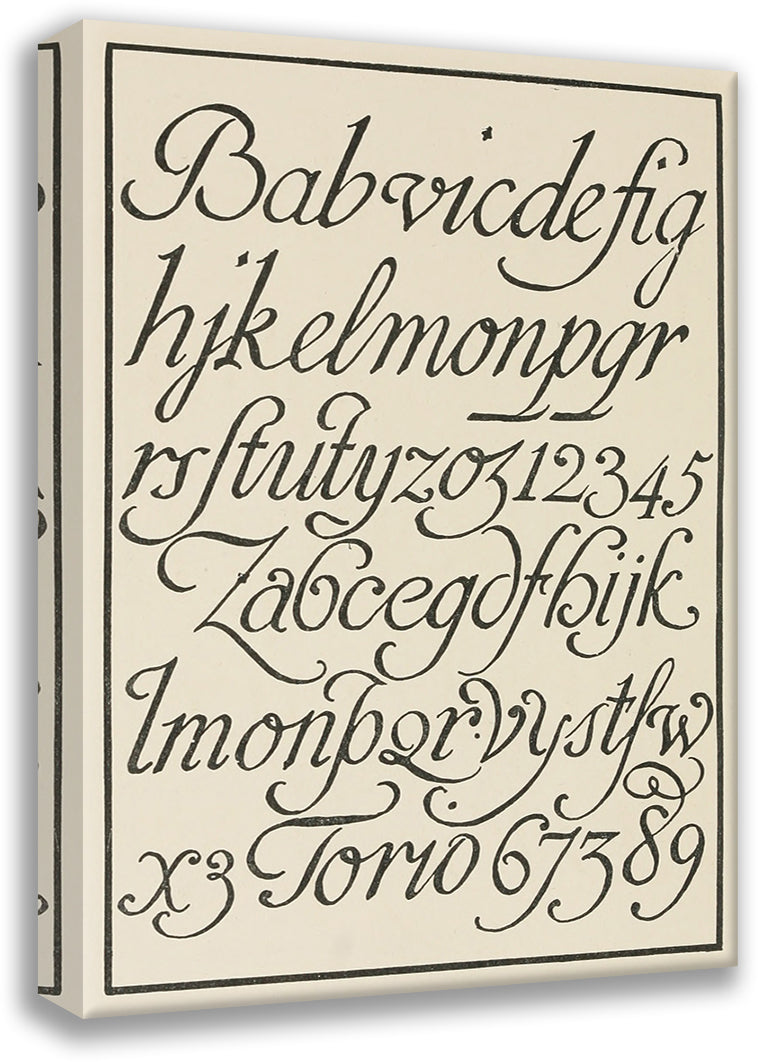 Babvicdefig
hjkelmonpqr
rsſtutyyzoz12345
Zabcegdfhijk
lmonpqrvystſw
xz Torio 67389